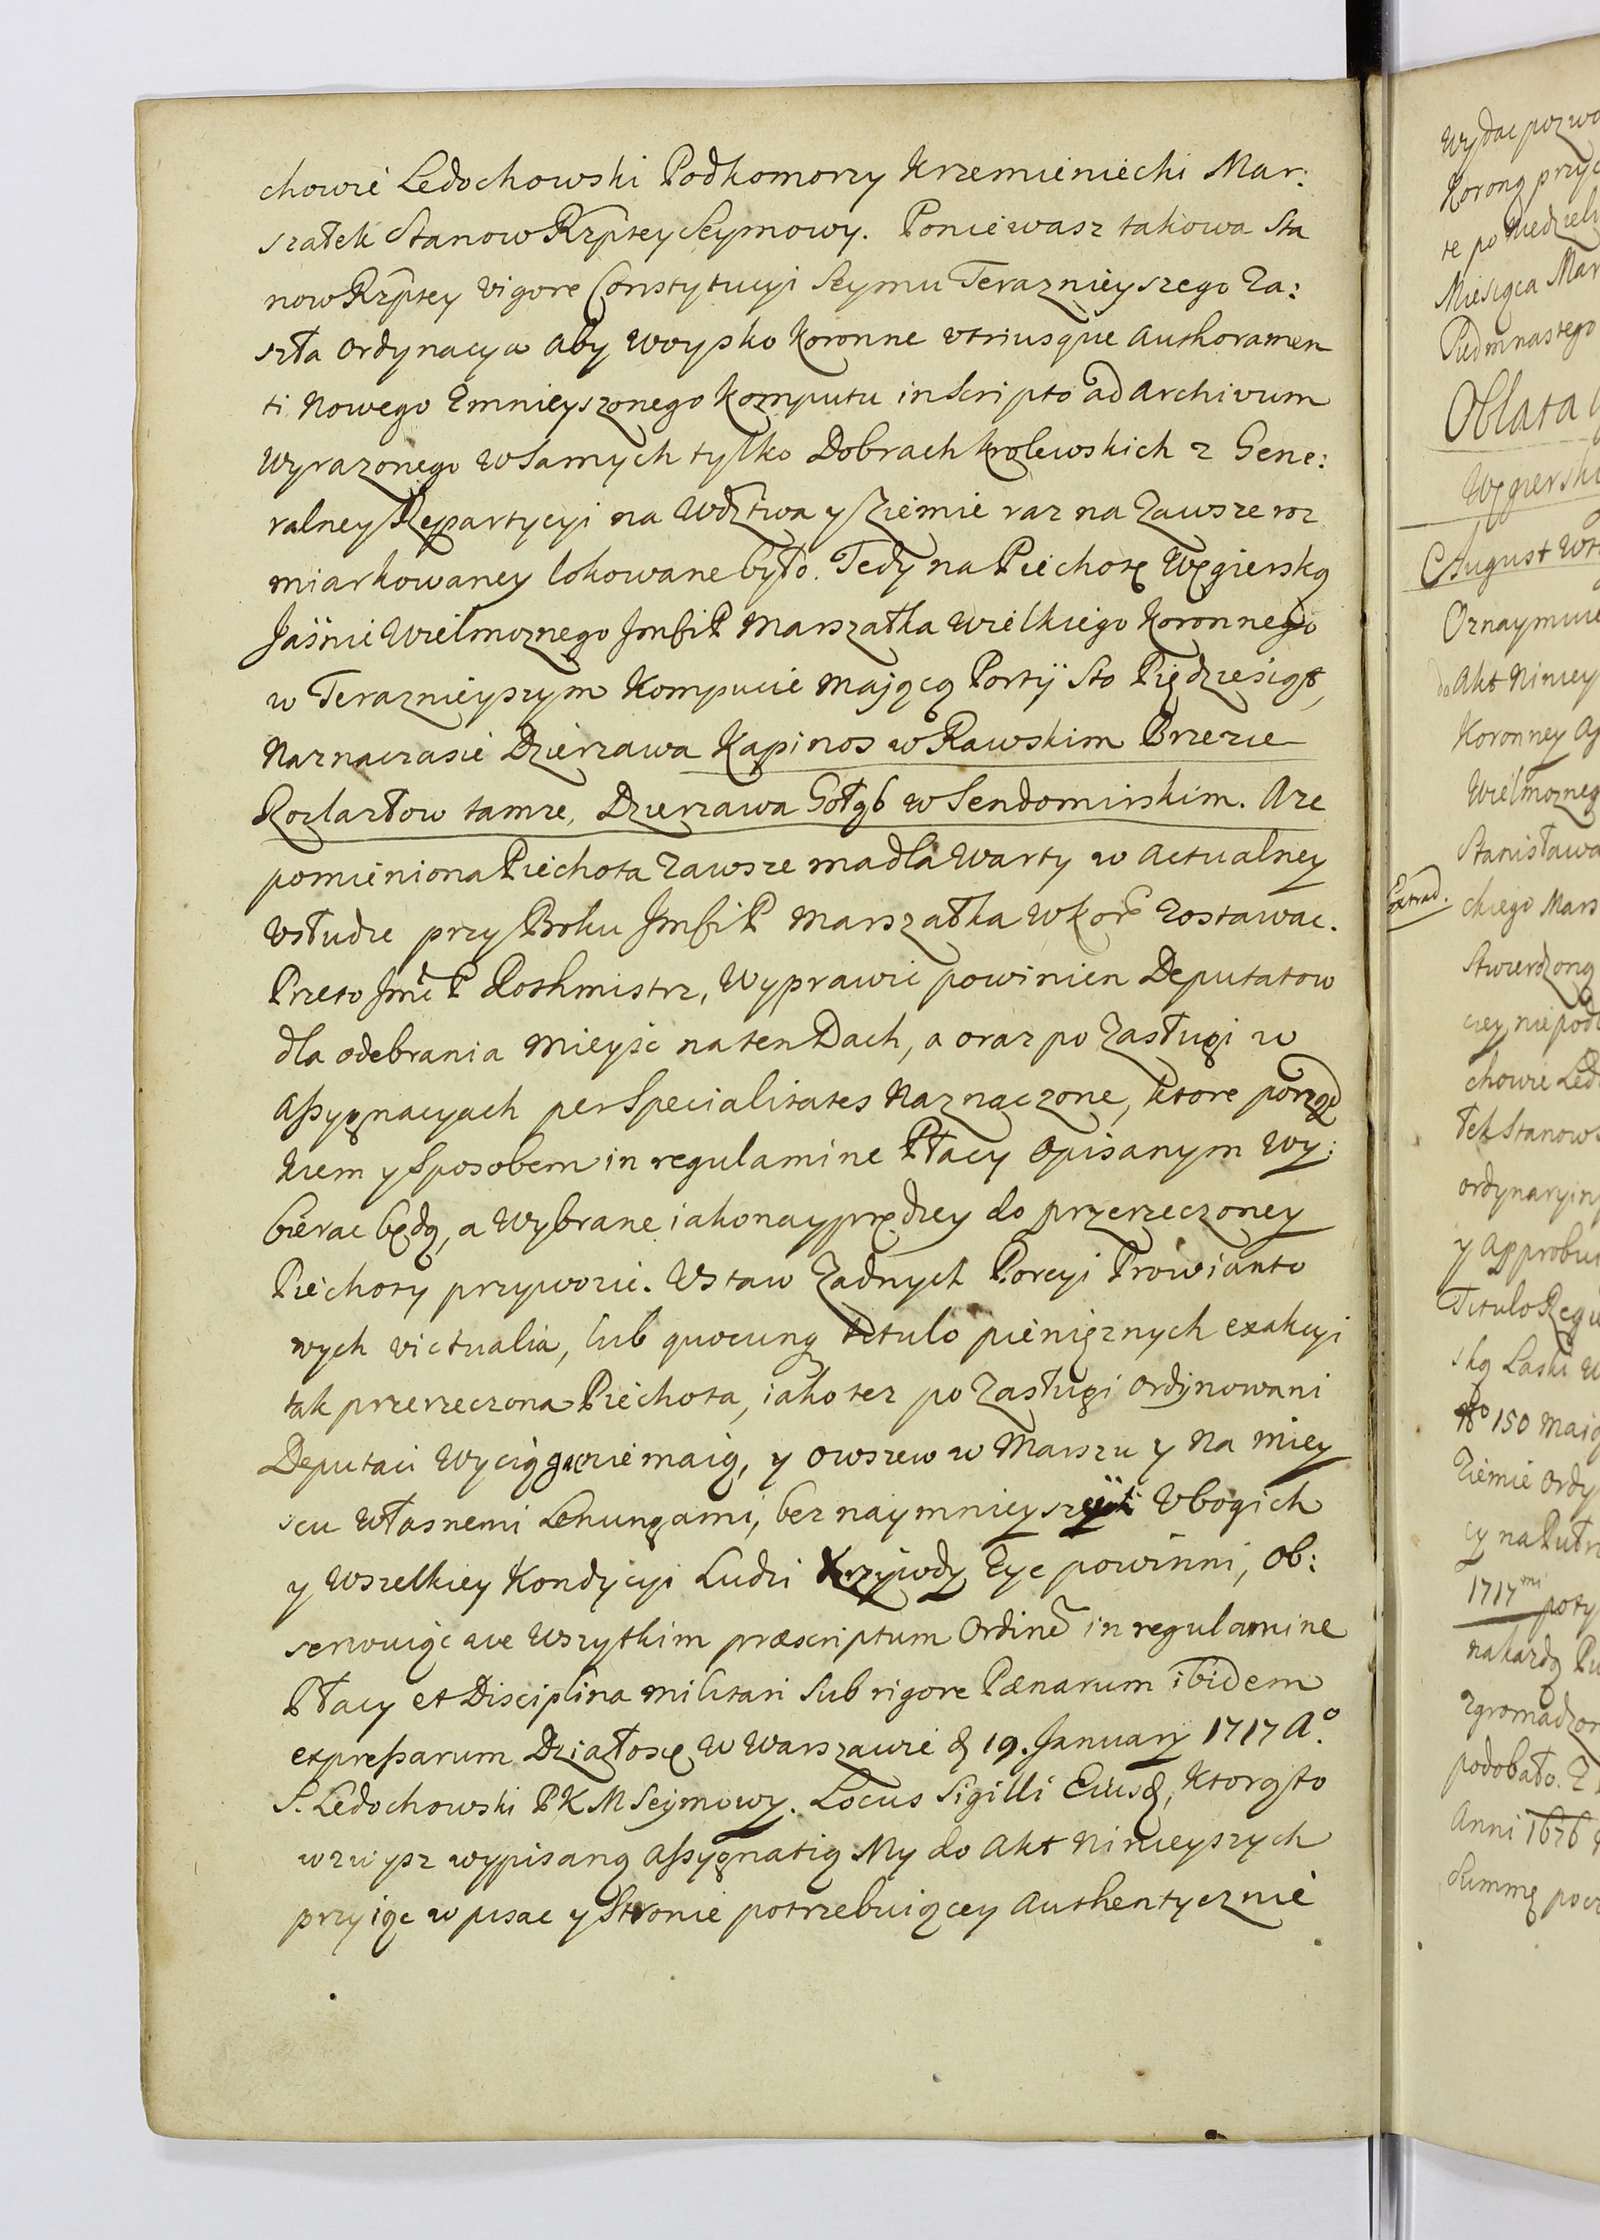 chowie Ledochowski Podkomorzy Krzemieniecki Mar:
szałek Stanow Rzptey Seymowy. Poniewasz takowa Sta
now Rzptey vigore Constytucyi Seymu Teraznieyszego Za:
szła Ordynacya aby Woysko Koronne utriusque Authoramen
ti Nowego Zmnieyszonego Komputu in Scripto ad Archivum
Wyrazonego w Samych tylko Dobrach krolewskich z Gene:
ralney Repartycyi na Wdztwa y Ziemie raz na Zawsze roz
miarkowaney lokowane było. Tedy na Piechotę Węgierską
Jaśnie Wielmoznego Jmści P Marszałka Wielkiego Koronnego
w Teraznieyszym Kompucie Mającą Portÿ Sto Pięдziesiąt,
Naznaczasie Dzierzawa Kapinos w Rawskim Brzezie
Kozlarzow tamze, Dzierzawa Gołąb w Sendomirskim. Aze
pomieniona Piechota Zawsze ma dla Warty w Actualney
Usłudze przy Boku Jmści P Marszałka W Kore Zostawac.
Przeto Jmć P Rothmistrz, Wyprawic powinien Deputatow
dla odebrania Mieysc na ten Dach, a oraz po Zasługi w
Assygnacyach per Specialitates Naznaczone, ktore porząd
kiem y Sposobem in regulamine Płacy Opisanym Wy:
bierac będą, a Wybrane iakonayprędzey do przerzeczoney
Piechoty przywozic. Ustaw Zadnych Porcyi Prowianto
wych victualia, lub quocunq titulo pieniężnych exakcyi
tak przerzeczona Piechota, iako tez po Zasługi ordynowani
Deputaci Wyciągac nie maią, y owszem w Marszu y Na miey
scu Własnemi Lenungami, bez naymnieyszey Ubogich
y Wszelkiey Kondycyi Ludzi Krzywdy Zyc powinni, Ob:
serwuiąc we Wszytkim præscriptum Ordine in regulamine
Płacy et Disciplina militari Sub rigore Pænarum ibidem
expressarum Działosię w Warszawie d 19. January 1717 Aº.
S. Ledochowski P K M Seymowy. Locus Sigilli Eiusd, Ktorąsto
wzwysz wypisaną Assygnatią My do Akt Ninieyszych
przyiąc w pisac y Stronie potrzebuiącey Authentycznie
Wydac pozwo
Koroną przyc
te po Niedziel
Miesiąca Mar
Siedmnastego
Oblata
Węgierski
August Wt
Oznaymuie
do Akt Niniey
Koronney
Wielmozneg
Stanisława
Extrad.
ckiego Mars
Stwierdzoną
cey niepod
chowie Led
łek Stanow
ordynaryin
y Approbu
Titulo Regu
ską Laski W
Nº 150 Maią
Ziemie Ordy
cy na Pułr
1717mi poty
na kazdą Pu
zgromadzon
podobało. Z
Anni 1676
Summę pocz